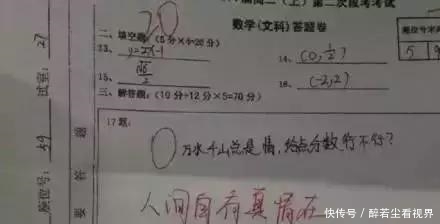 20
(上)第二次段考考试
数学(文科)答题卷
二、填空题:(5分×4=20分)
13、y=2x-1
14、(0,1/2)
15、√6/2
16、(-2,2)
三、解答题:(10分+12分×5=70分)
17题:
0
万水千山总是情,给点分数行不行?
人间自有真情在
试室:27
座位号:49
答
要
快传号 / 醉若尘看视界